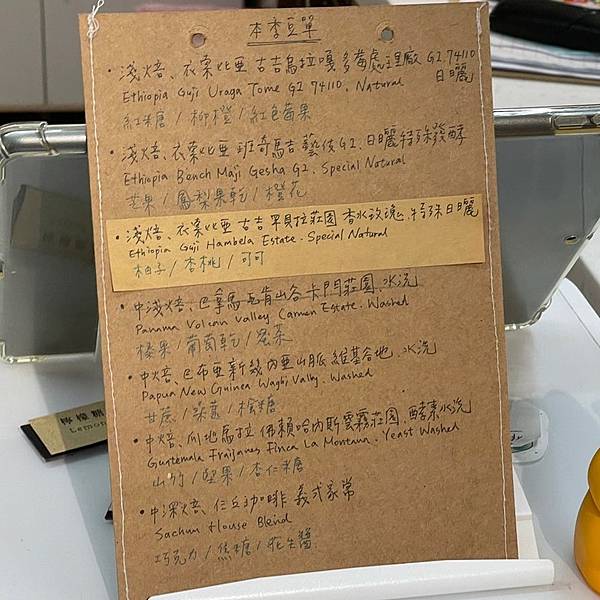 本季豆單
• 淺焙、衣索比亞 古吉烏拉嘎 多莓處理廠 G2.74110 日曬
Ethiopia Guji Uraga Tome G2 74110. Natural
紅糖 / 柳橙 / 紅色莓果
• 淺焙、衣索比亞 班奇馬吉 藝伎G2.日曬特殊發酵
Ethiopia Bench Maji Gesha G2. Special Natural
芒果 / 鳳梨果乾 / 橙花
• 淺焙、衣索比亞 古吉 罕貝拉莊園 香水玫瑰.特殊日曬
Ethiopia Guji Hambela Estate. Special Natural
柚子 / 杏桃 / 可可
• 中淺焙、巴拿馬 火山谷卡門莊園.水洗
Panama Volcan Valley Carmen Estate. Washed
榛果 / 葡萄乾 / 紅茶
• 中焙、巴布亞新幾內亞 維基谷地.水洗
Papua New Guinea Waghi Valley. Washed
甘蔗 / 楓糖
• 中焙、瓜地馬拉 佛賴哈內斯 雲霧莊園.酵素水洗
Guatemala Fraijanes Finca La Montana. Yeast Washed
山竹 / 堅果 / 杏仁糖
• 中深焙、仨丘咖啡 義式家常
Sachun House Blend
巧克力 / 焦糖 / 花生醬
檸檬糖
Lemon